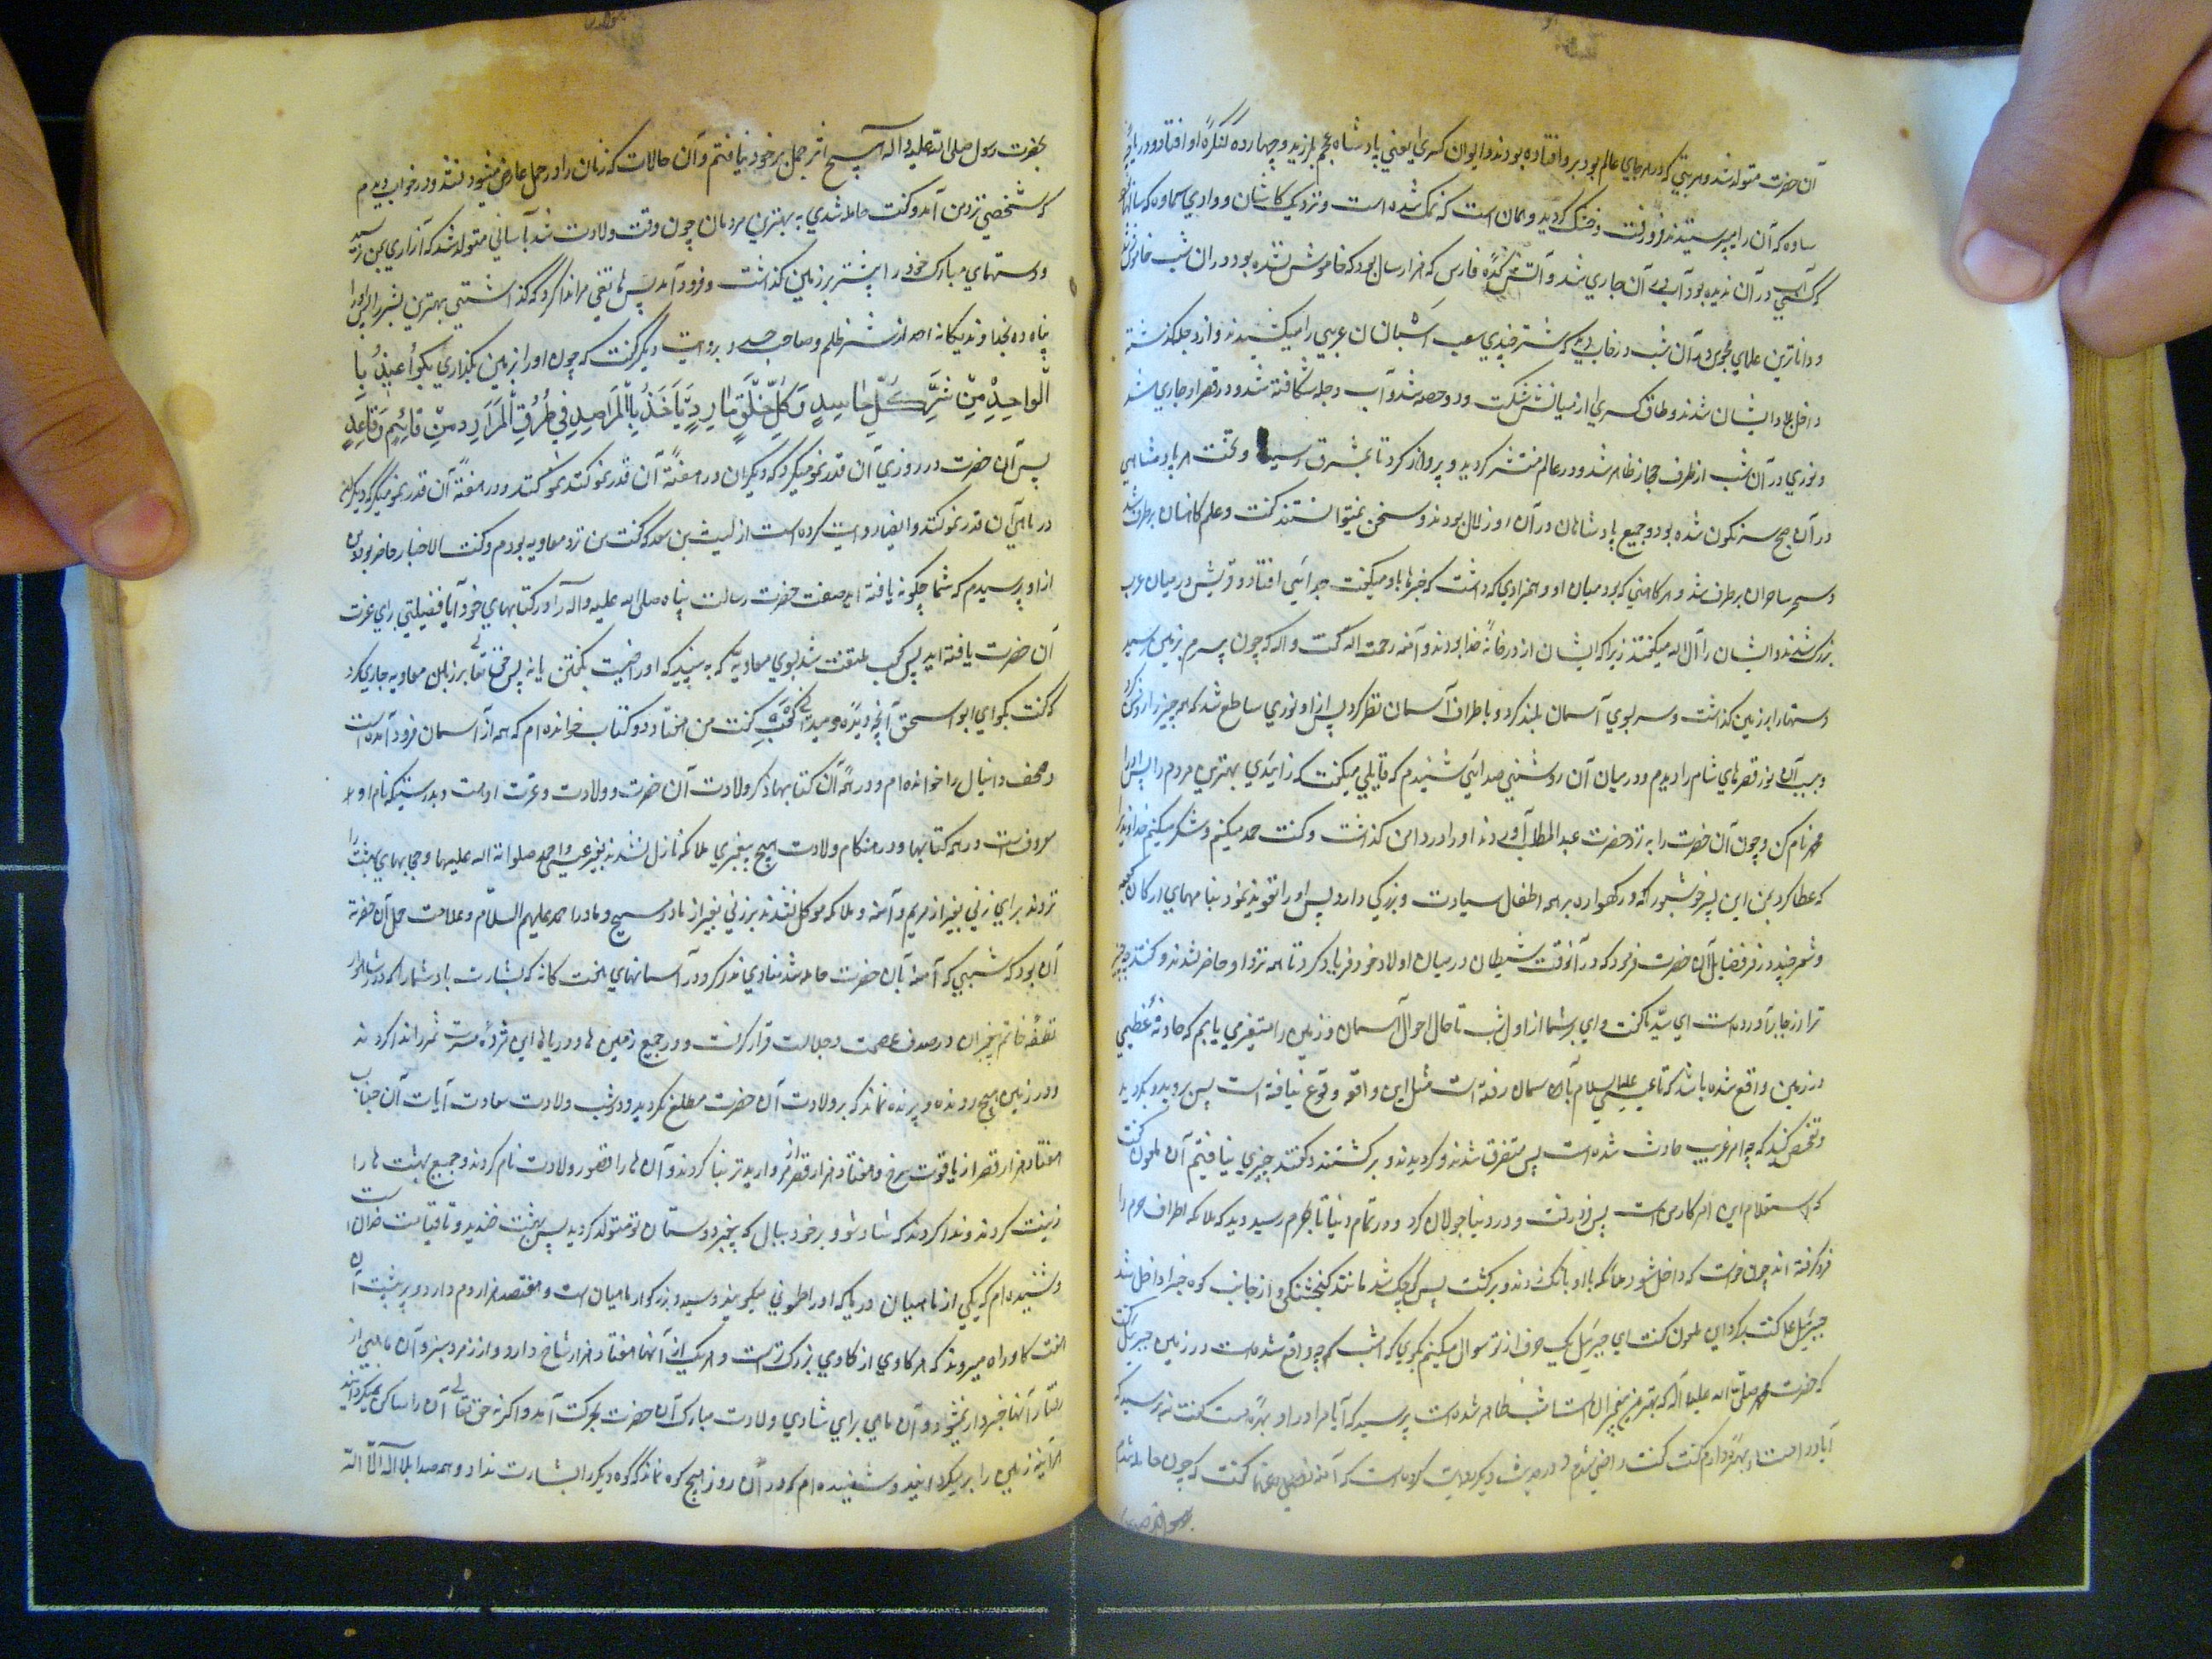 آن حضرت متولد شد و هر بتی که در هر جای عالم بود بر رو افتاده بودند و ایوان کسری یعنی پادشاه عجم بلرزید و چهارده کنگره او افتاد و دریاچه
ساوه که آن را میپرستیدند فرو رفت و خشک گردید و همان است که نمک شده است و نزدیک کاشان و وادی سماوه که سالها بود
که کسی آب در آن ندیده بود آب در آن جاری شد و آتش کده فارس که هزار سال بود که خاموش نشده بود در ان شب خاموش شد
و داناترین علمای مجوس در آن شب در خواب دید که شتر چندی صعب اسبان عربی را میکشیدند و از دجله گذشته
داخل بلاد ایشان شدند و طاق کسری از میانش شکست و دو حصه شد و آب دجله شکافته شد و در قصر او جاری شد
و نوری در آن شب از طرف حجاز ظاهر شد و در عالم منتشر گردید و پرواز کرد تا بمشرق رسید و تخت هر پادشاهی
در آن صبح سرنگون شده بود و جمیع پادشاهان در آن روز لال بودند و سخن نمیتوانستند گفت و علم کاهنان برطرف شد
و سحر ساحران برطرف شد و هر کاهنی که بود میان او و همزادی که داشت که خبرها باو میگفت جدائی افتاد و قریش در میان عرب
بزرگ شدند و ایشان را آل اله میگفتند زیرا که ایشان از در خانه خدا بودند و آمنه رحمت اله گفت و اله که چون پسرم بزمین رسید
دستها را بر زمین گذاشت و سر بسوی آسمان بلند کرد و باطراف آسمان نظر کرد پس از او نوری ساطع شد که همه چیز را روشن کرد
و بسبب آن نور قصرهای شام را دیدم و در میان آن روشنی صدائی شنیدم که قایلی میگفت که زائیدی بهترین مردم را پس او را
محمد نام کن و چون آن حضرت را به نزد حضرت عبد المطلب آوردند او را در دامن گذاشت و گفت حمد میکنم و شکر میکنم خداوندی را
که عطا کرد بمن این پسر خوشبو را که در گهواره بر همه اطفال سیادت و بزرگی دارد پس او را تعویذ نمود بنامهای ارکان کعبه
و شعر چند در فضایل آن حضرت فرمود که در آنوقت شیطان در میان اولاد خود فریاد کرد تا همه نزد او حاضر شدند و گفتند چه چیز
ترا از جا برآورده است ای سید ما گفت وای بر شما از اول شب تا حال احوال آسمان و زمین را متغیر می یابم که حادثه عظیمی
در زمین واقع شده باشد که تا عیسی علیه السلام به آسمان رفته است مثل این واقعه وقوع نیافته است پس بروید و بگردید
و تفحص کنید که چه امر غریب حادث شده است پس متفرق شدند و گردیدند و برگشتند و گفتند چیزی نیافتیم آن ملعون گفت
که استعلام این امر کار من است پس فرو رفت و در دنیا جولان کرد و در تمام دنیا تا بحرم رسید دید که ملائکه اطراف حرم را
فرو گرفته اند چون خواست که داخل شود ملائکه با او بانگ زدند و برگشت پس کوچک شد مانند گنجشکی و از جانب کوه حرا داخل شد
جبرئیل ع گفت برگرد ای ملعون گفت ای جبرئیل یک حرف از تو سوال میکنم بگوی که امشب چه واقع شده است در زمین جبرئیل گفت
که حضرت محمد صلی اله علیه و آله که بهترین پیغمبران است امشب ظاهر شده است پرسید که آیا مرا در او بهره هست گفت نه پرسید که
آیا در امت او بهره دارم گفت گفت راضی شدم و در حدیث دیگر روایت کرده است که آمنه گفت که چون حامله شدم
بحضرت رسول صلی الله علیه و آله هیچ اثر حمل بر خود نیافتم و آن حالات که زنان را در حمل عارض میشود نشد و در خواب دیدم
که شخصی نزد من آمد و گفت حامله شدی به بهترین مردمان چون وقت ولادت شد بآسانی متولد شد که آزاری بمن نرسید
و دستهای مبارک خود را پیشتر بر زمین گذاشت و فرود آمد پس هاتفی مرا ندا کرد که گذاشتی بهترین بشر را پس او را
پناه ده بخداوند یگانه صمد از شر هر ظالم و صاحب حسد و بروایت دیگر گفت که چون او را بزمین بگذاری بگو أعیذه با
الواحد من شر کل حاسد و کل خلق مارد یأخذ بالمراصد فی طرق الموارد من قائم و قاعد
پس آن حضرت در روزی آن قدر نمو میکرد که دیگران در هفته آن قدر نمو کنند و در هفته آن قدر نمو میکرد که دیگران
در ماهی آن قدر نمو کنند و ایضا روایت کرده است از لیث بن سعد که گفت من نزد معاویه بودم و کعب الاحبار حاضر بود من
از او پرسیدم که شما چگونه یافته اید صفت حضرت رسالت پناه صلی اله علیه و آله را در کتابهای خود آیا فضیلتی برای عترت
آن حضرت یافته اید پس کعب ملتفت شد بسوی معاویه که به بیند که او راضیست بگفتن یا نه پس حق تعالی بر زبان معاویه جاری کرد
که گفت بگو ای ابو اسحق آنچه دیده و میدانی کعب گفت من هفتاد و دو کتاب خوانده ام که همه از آسمان فرود آمده است
و صحف دانیال را خوانده ام و در همه آن کتابها ذکر ولادت آن حضرت و ولادت و عترت او هست و بدرستیکه نام او
معروف است در همه کتابها و در هنگام ولادت هیچ پیغمبری ملائکه نازل نشدند بغیر عیسی و احمد صلوات اله علیهما و حجابهای بهشت را
نزدند برای زنی بغیر از مریم و آمنه و ملائکه موکل نشدند بر زنی بغیر از مادر مسیح و مادر احمد علیهم السلام و علامت حمل آن حضرت
آن بود که شبی که آمنه بآن حضرت حامله شد منادی ندا کرد در آسمانهای هفت گانه که بشارت باد شما را که
نطفه خاتم پیغمبران در صدف عصمت و جلالت قرار گرفت و در جمیع زمین ها و دریاها این مژده مسرت ثمر را ندا کردند
و در زمین هیچ رونده و پرنده نماند که بر ولادت آن حضرت مطلع نگردید و در شب ولادت سعادت آیات آن جناب
هفتاد هزار قصر از یاقوت سرخ و هفتاد هزار قصر از مروارید تر بنا کردند و آن ها را قصور ولادت نام کردند و جمیع بهشت ها را
زینت کردند و ندا کردند که شاد شو و بر خود ببال که پیغمبر دوستان تو متولد گردید پس بهشت خندید و تا قیامت خندان است
و شنیده ام که یکی از ماهیان دریا که او را طموس میگویند و سید و بزرگوار ماهیان است و هفتصد هزار دم دارد و بر پشت آن
هفت گاو راه میروند که هر گاوی از گاوی بزرگتر است و هر یک از آنها هفتاد هزار شاخ دارد و از زمرد سبز و آن ماهی از
رفتار آنها خبردار نمیشود و آن ماهی برای شادی ولادت مبارک آن حضرت بحرکت آمد و اگر نه حق تعالی آن را ساکن میگردانید
هر آینه زمین را بر میگردانید و شنیده ام که در آن روز هیچ کوه نماند که کوه دیگر را بشارت نداد و همه صدا بلا آله الا الله